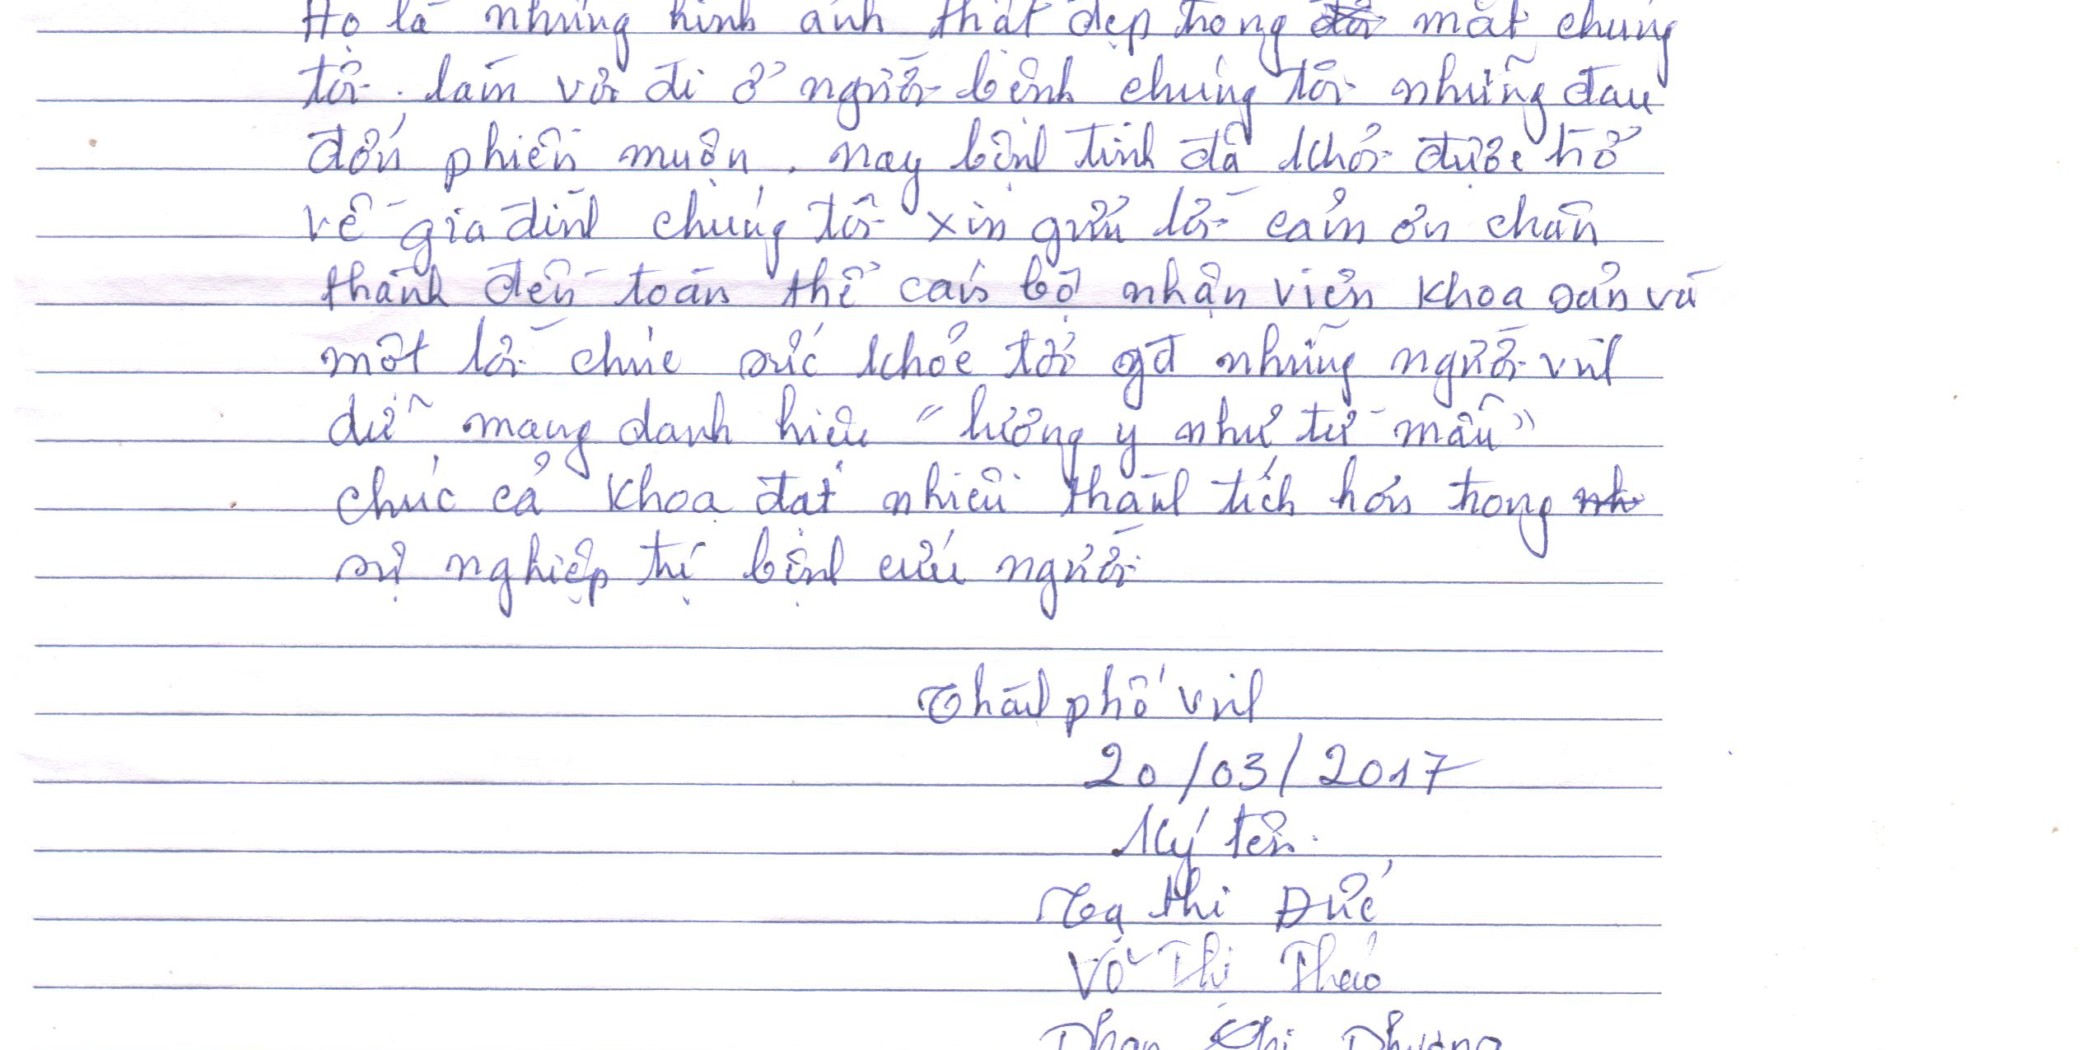 Họ là những hình ảnh thật đẹp trong mắt chúng
tôi. làm vơi đi ở người bệnh chúng tôi những đau
đớn phiền muộn. nay bệnh tình đã khỏi được trở
về gia đình chúng tôi xin gửi lời cảm ơn chân
thành đến toàn thể cán bộ nhân viên khoa sản và
một lời chúc sức khỏe tới những người vinh
dự mang danh hiệu "lương y như từ mẫu"
chúc cả khoa đạt nhiều thành tích hơn trong
sự nghiệp trị bệnh cứu người
Thành phố vinh
20/03/2017
Ký tên.
Tạ thị Đức
Võ Thị Thảo
Phan Thị Phương